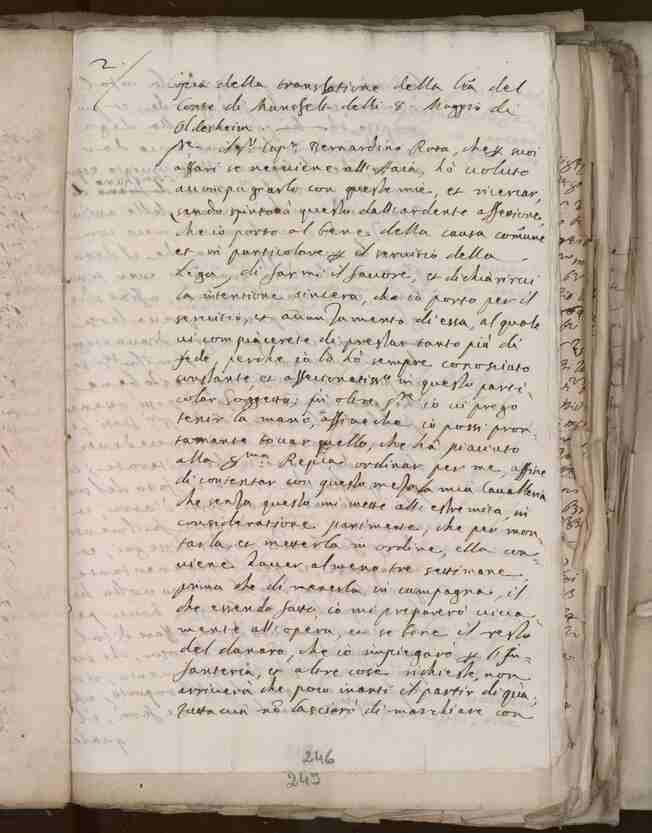 2
opia della translatione della lrã del
conte di Mansfelt delli 8. Maggio di
Oldesheim.
Sigr Capno Bernardino Rota, che p suoi
affari se ne viene all'
accompagnarlo con queste mie, et ricercar,
sendo spinto à questo dall'ardente affettione,
che io porto al bene della causa comune
et in particolare p il servitio della
Lega, di farmi il favore, et dichiarirvi
la intentione sincera, che io porto per il
servitio, et avanzamento di essa, al quale
vi compiacerete di prestar tanto più di
fede, perche io lo hò sempre conosciuto
constante et affetionatissº in questo parti¬
colar soggetto; in oltre io vi prego
tenir la mano, affinche io possi pron¬
tamente toccar quello, che hà piaciuto
alla Repca ordinar per me, affine
di contentar con questo mezo la mia Cavalleria
che senza questo mi mette all'estremità, in
consideratione parimente, che per mon¬
tarla, et metterla in ordine, ella con¬
viene haver almeno tre settimane,
prima che di menerla in campagna, il
che essendo fatto, io mi preparerò viva¬
mente all'opera, et se bene il resto
del danaro, che io impiegarò p l'in¬
fanteria, et altre cose richieste, non
arriverà che poco inanti il partir di quà;
tuttavia nõ lasciarò di marchiare con
246
245